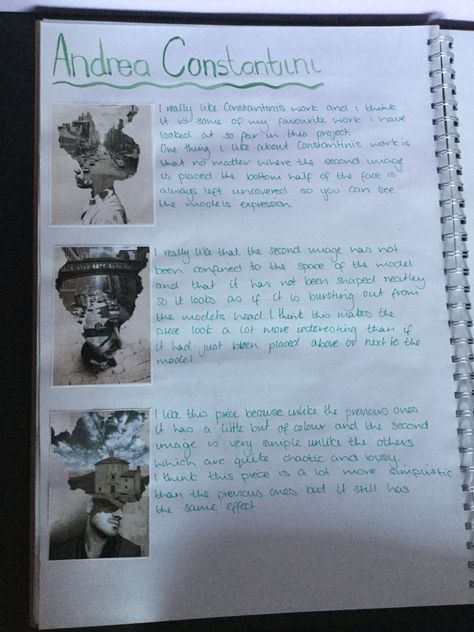 Andrea Constantini
I really like Constantinis work and i think
it is some of my favourite work i have
looked at so far in this project.
One thing i like about Constantinis work is
that no matter where the second image
is placed the bottom half of the face is
always left uncovered so you can see
the models expression
I really like that the second image has not
been confined to the space of the model
and that it has not been shaped neatley
so it looks as if it is bursting out from
the models head. I think this makes the
piece look a lot more interesting than if
it had just been placed above or next to the
model.
I like this piece because unlike the previous ones
it has a little but of colour and the second
image is very simple unlike the others
which are quite chaotic and busy.
I think this piece is a lot more simplistic
than the previous ones but it still has
the same effect